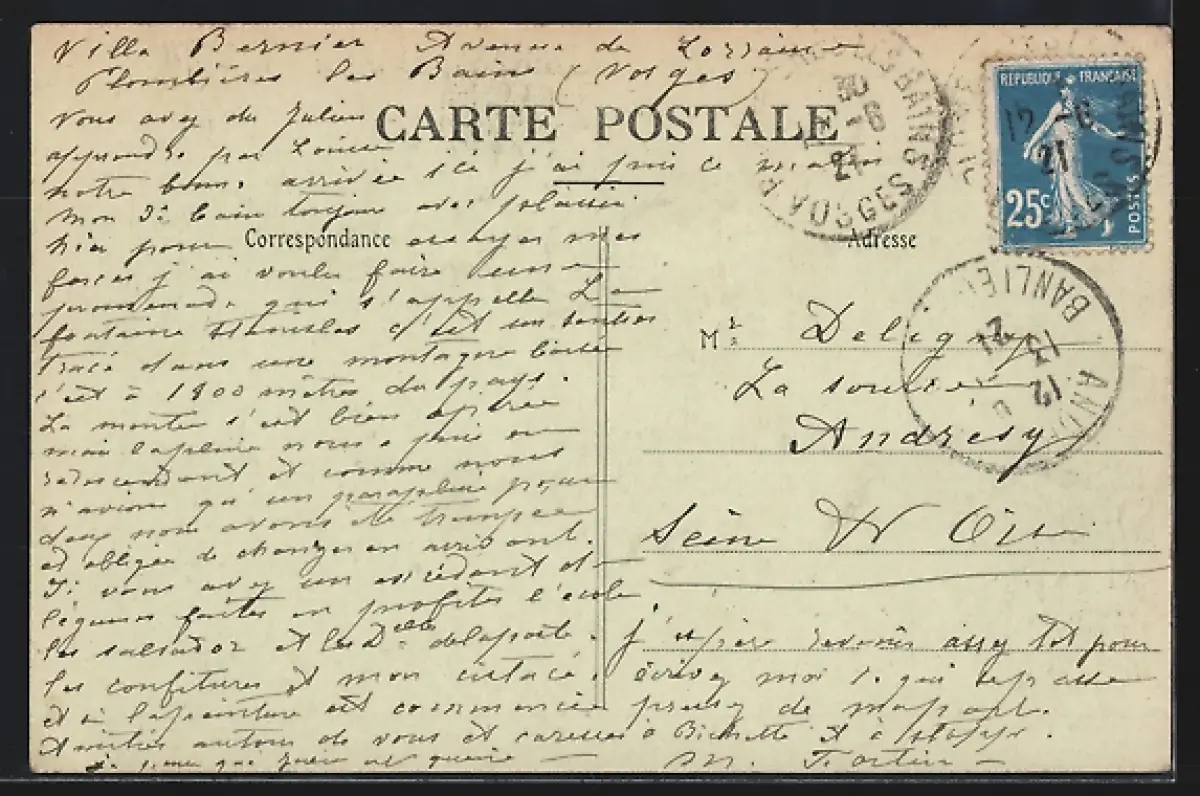 Villa Bernier Avenue de Lorraine
Plombières les Bains (Vosges)
CARTE POSTALE
Vous avez du Julien
apprendre par Louise
notre bonne arrivée ici j'ai pris ce matin
mon 3e bain toujours avec plaisir
hier pour essayer mes
forces j'ai voulu faire une
promenade qui s'appelle La
fontaine Stanislas c'est un sentier
tracé dans une montagne boisée
c'est à 1800 mètres du pays.
La montée s'est bien opérée
mais la pluie nous a pris en
redescendant et comme nous
n'avions qu'un parapluie pour
deux nous avons été trempées
et obligée de changer en arrivant.
Si vous avez un excédant de
légumes faites en profiter l'école
les salsador et les Delles delaporte.
les confitures et mon
et si la peinture est commencée
Amitiés autour de vous et caresses à Bichette et à
Correspondance
Adresse
REPUBLIQUE FRANÇAISE
25c
POSTES
12 -6
21
30 -6
21
VOSGES
BANLIEUE
12
13
21
Mr Deligny
La
Andrésy
Seine et Oise
j'espère revenir assez tôt pour
écrivez moi ce qui se passe
de ma part.
M. Fortin